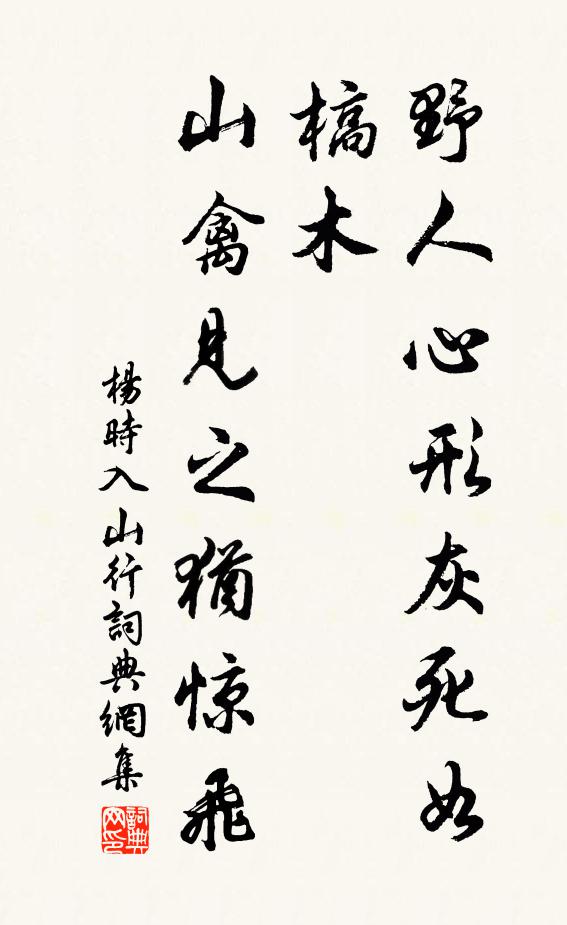 野人心形灰死如
槁木
山禽見之猶惊飛
楊時入山行詞典網集
詞典网印